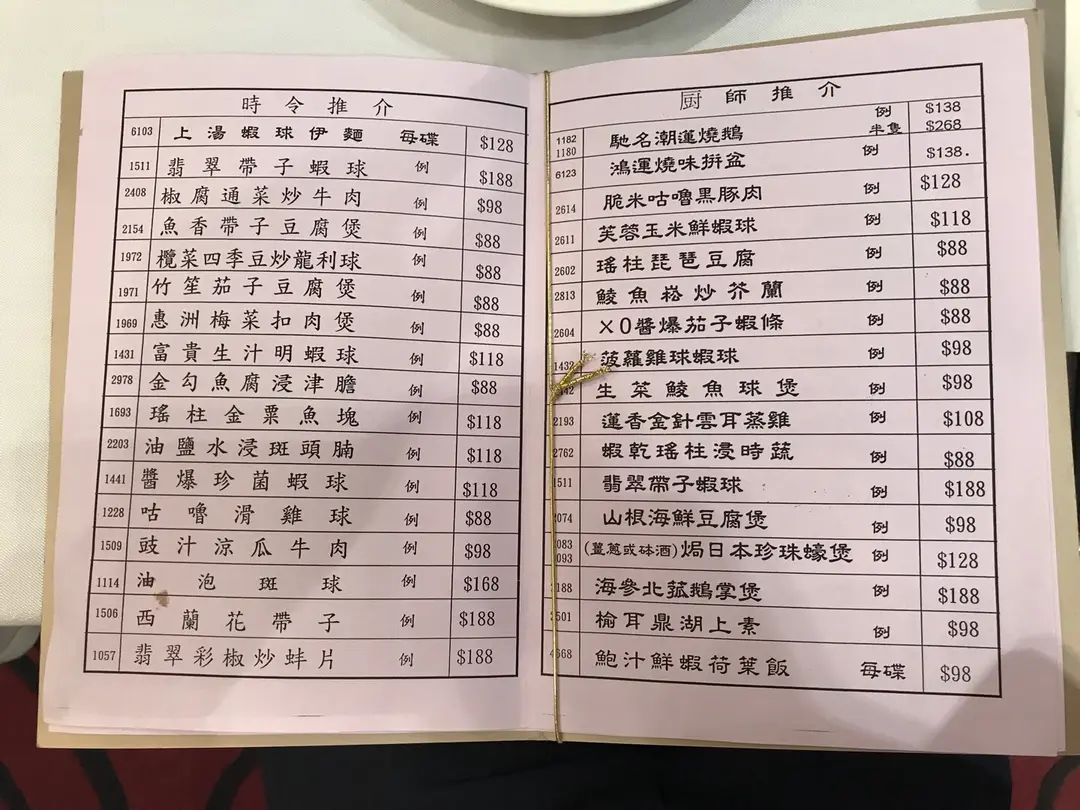 時令推介
6103 上湯蝦球伊麵 每碟 $128
1511 翡翠帶子蝦球 例 $188
2408 椒腐通菜炒牛肉 例 $98
2154 魚香帶子豆腐煲 例 $88
1972 欖菜四季豆炒龍利球 例 $88
1971 竹笙茄子豆腐煲 例 $88
1969 惠洲梅菜扣肉煲 例 $88
1431 富貴生汁明蝦球 例 $118
2978 金勾魚腐浸津膽 例 $88
1693 瑤柱金粟魚塊 例 $118
2203 油鹽水浸斑頭腩 例 $118
1441 醬爆珍菌蝦球 例 $118
1228 咕嚕滑雞球 例 $88
1509 豉汁涼瓜牛肉 例 $98
1114 油泡斑球 例 $168
1506 西蘭花帶子 例 $188
1057 翡翠彩椒炒蚌片 例 $188
厨師推介
1182 馳名潮蓮燒鵝 例 $138
1180 半隻 $268
6123 鴻運燒味拼盆 例 $138.
2614 脆米咕嚕黑豚肉 例 $128
2611 芙蓉玉米鮮蝦球 例 $118
2602 瑤柱琵琶豆腐 例 $88
2813 鯪魚崧炒芥蘭 例 $88
2604 XO醬爆茄子蝦條 例 $88
1432 菠蘿雞球蝦球 例 $98
生菜鯪魚球煲 例 $98
2193 蓮香金針雲耳蒸雞 例 $108
2762 蝦乾瑤柱浸時蔬 例 $88
1511 翡翠帶子蝦球 例 $188
2074 山根海鮮豆腐煲 例 $98
(薑蔥或砵酒)焗日本珍珠蠔煲 例 $128
海參北菰鵝掌煲 例 $188
榆耳鼎湖上素 例 $98
鮑汁鮮蝦荷葉飯 每碟 $98